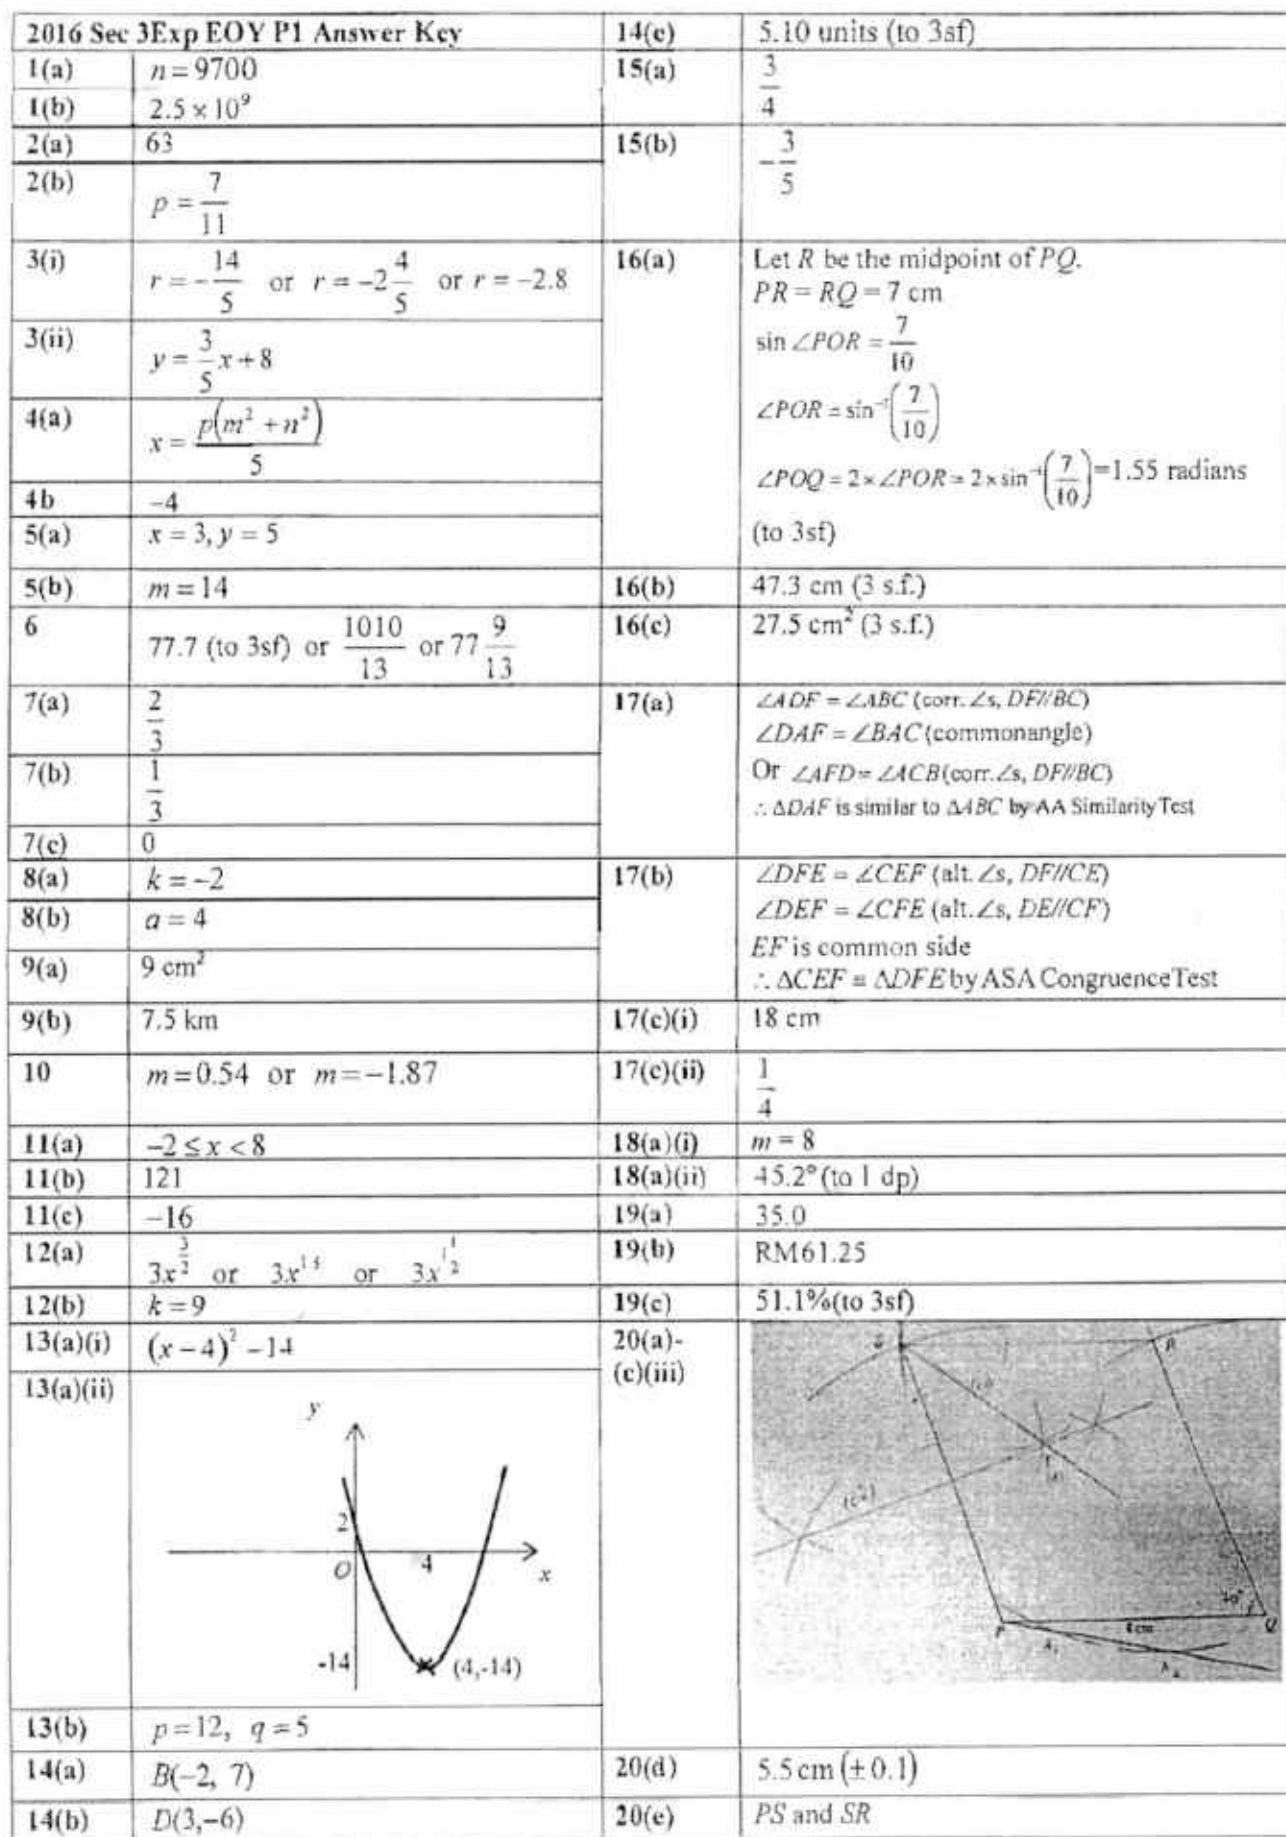 2016 Sec 3Exp EOY P1 Answer Key
1(a) n = 9700
1(b) 2.5 × 10⁹
2(a) 63
2(b) p = 7/11
3(i) r = −14/5 or r = −2 4/5 or r = −2.8
3(ii) y = 3/5 x + 8
4(a) x = p(m² + n²)/5
4b −4
5(a) x = 3, y = 5
5(b) m = 14
6 77.7 (to 3sf) or 1010/13 or 77 9/13
7(a) 2/3
7(b) 1/3
7(c) 0
8(a) k = −2
8(b) a = 4
9(a) 9 cm²
9(b) 7.5 km
10 m = 0.54 or m = −1.87
11(a) −2 ≤ x < 8
11(b) 121
11(c) −16
12(a) 3x^(3/2) or 3x^1.5 or 3x^(1 1/2)
12(b) k = 9
13(a)(i) (x − 4)² − 14
13(a)(ii)
y
2
O
4
x
-14
(4,-14)
13(b) p = 12, q = 5
14(a) B(−2, 7)
14(b) D(3,−6)
14(c) 5.10 units (to 3sf)
15(a) 3/4
15(b) −3/5
16(a) Let R be the midpoint of PQ.
PR = RQ = 7 cm
sin ∠POR = 7/10
∠POR = sin⁻¹(7/10)
∠POQ = 2 × ∠POR = 2 × sin⁻¹(7/10) = 1.55 radians
(to 3sf)
16(b) 47.3 cm (3 s.f.)
16(c) 27.5 cm² (3 s.f.)
17(a) ∠ADF = ∠ABC (corr. ∠s, DF//BC)
∠DAF = ∠BAC (commonangle)
Or ∠AFD = ∠ACB (corr. ∠s, DF//BC)
∴ ΔDAF is similar to ΔABC by AA Similarity Test
17(b) ∠DFE = ∠CEF (alt. ∠s, DF//CE)
∠DEF = ∠CFE (alt. ∠s, DE//CF)
EF is common side
∴ ΔCEF ≡ ΔDFE by ASA Congruence Test
17(c)(i) 18 cm
17(c)(ii) 1/4
18(a)(i) m = 8
18(a)(ii) 45.2° (to 1 dp)
19(a) 35.0
19(b) RM61.25
19(c) 51.1%(to 3sf)
20(a)-
(c)(iii)
S
R
T
P
8cm
70°
Q
20(d) 5.5 cm (± 0.1)
20(e) PS and SR